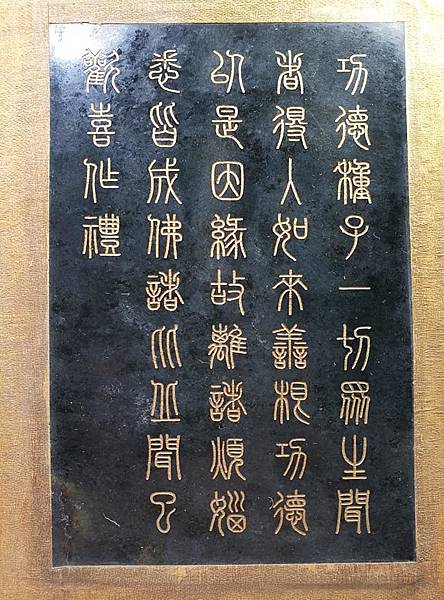 功德種子一切眾生聞
者得入如來善根功德
以是因緣故離諸煩惱
悉皆成佛諸比丘聞已
歡喜作禮